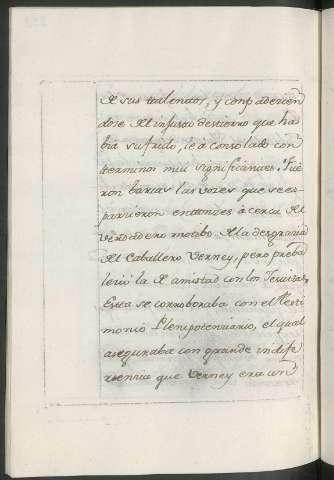 de sus talentos, y compadecien
dose del injusto destierro que ha
bia sufrido, le á consolado con
terminos mui significantes. Fue
ron barias las vozes que se es-
parcieron entonzes á cerca del
verdadero motibo de la desgracia
del Caballero Verney, pero preba
leció la de amistad con los Jesuitas
Esta se corroboraba con el Testi
monio Plenipotenciario, el qual
aseguraba con grande indife
rencia que Verney era un